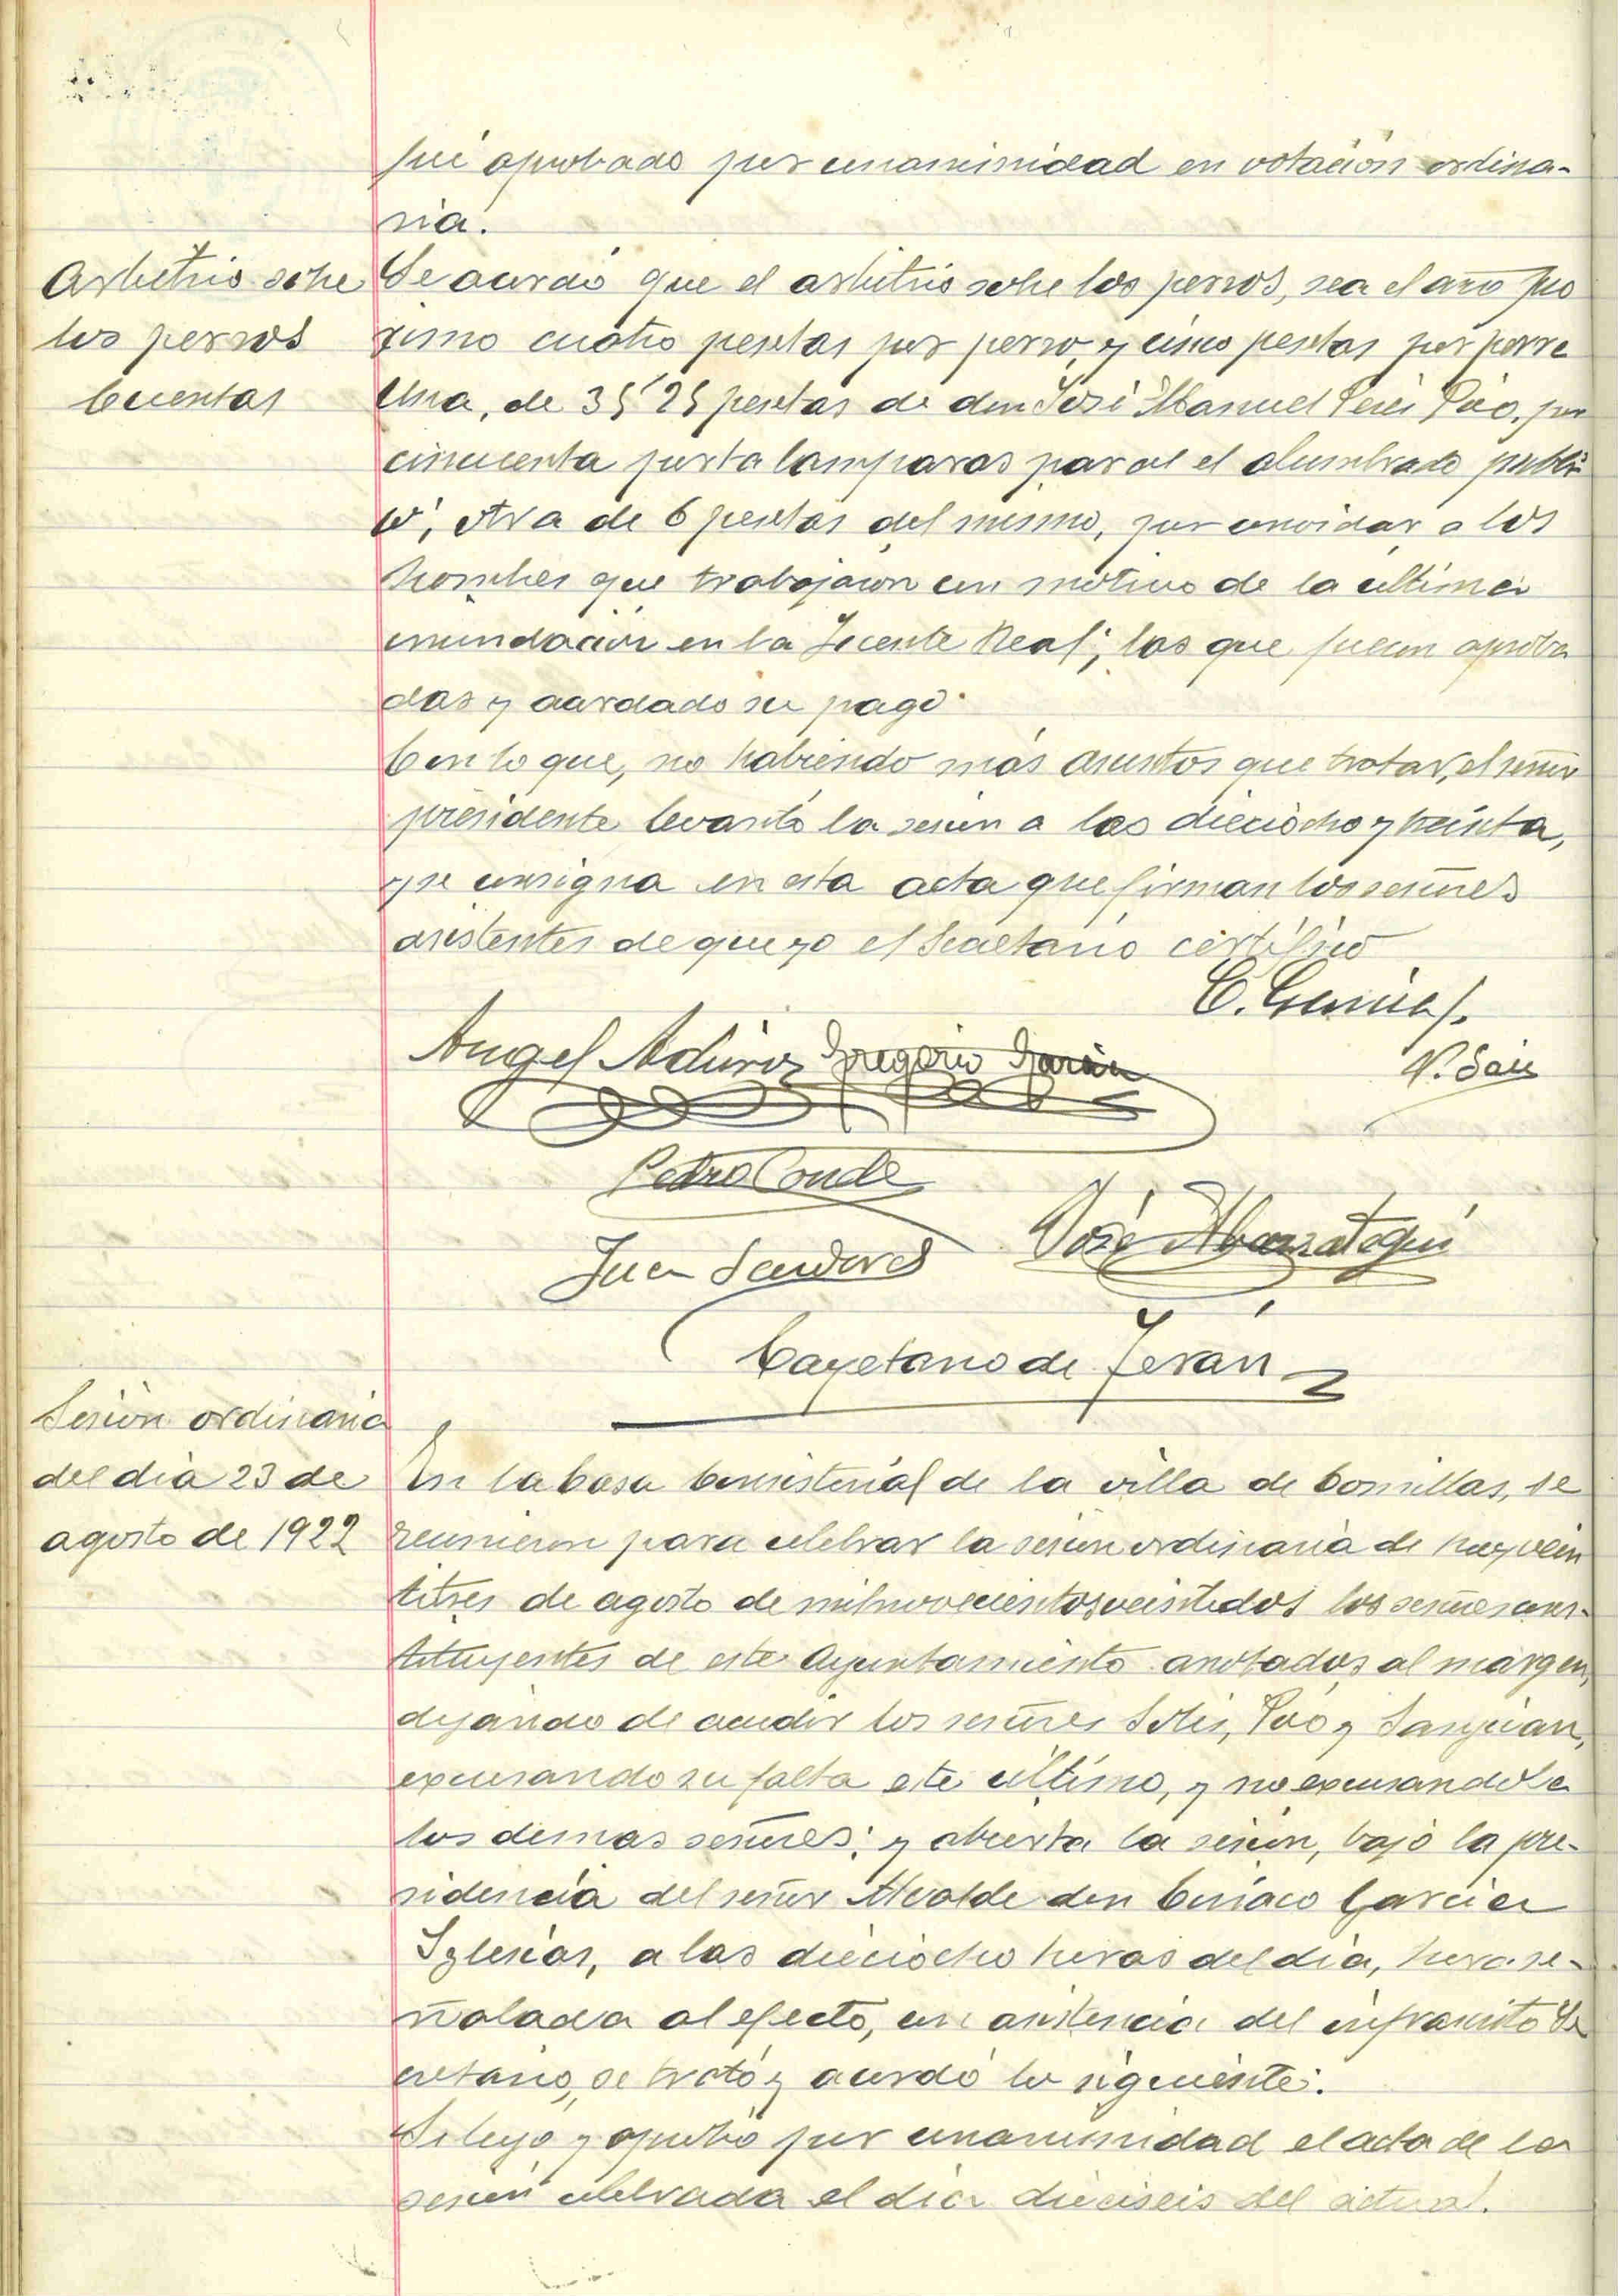 fué aprobado por unanimidad en votación ordina-
ria.
Arbitrio sobre
los perros
Cuentas
Se acordó que el arbitrio sobre los perros, sea el año pró
ximo cuatro pesetas por perro, y cinco pesetas por perra
Una, de 35'25 pesetas de don José Manuel Pío, por
cincuenta porta lamparas para el alumbrado públi
co; otra de 6 pesetas del mismo, por convidar a los
hombres que trabajaron con motivo de la última
inundación en la Fuente Real; las que fueron aproba
das y acordado su pago.
Con lo que, no habiendo más asuntos que tratar, el señor
presidente levantó la sesión a las dieciocho y treinta,
y se consigna en esta acta que firman los señores
asistentes de que yo el Secretario certifico
C. García I.
Angel Aduriz Gregorio
P. Conde
Pedro Conde
José Abarrategui
Juan
Cayetano de Terán
Sesión ordinaria
del día 23 de
agosto de 1922
En la Casa Consistorial de la villa de Comillas, se
reunieron para celebrar la sesión ordinaria de hoy vein
titrés de agosto de mil novecientos veintidos los señores cons-
tituyentes de este Ayuntamiento anotados al margen,
dejando de acudir los señores Solís, Pío y Sanjuan,
excusando su falta este último, y no excusandola
los demas señores; y abierta la sesión, bajo la pre-
sidencia del señor Alcalde don Ciriaco García
Iglesias, a las dieciocho horas del día, hora se-
ñalada al efecto, con asistencia del infrascrito Se
cretario, se trató y acordó lo siguiente:
Se leyó y aprobó por unanimidad el acta de la
sesión celebrada el día dieciseis del actual.